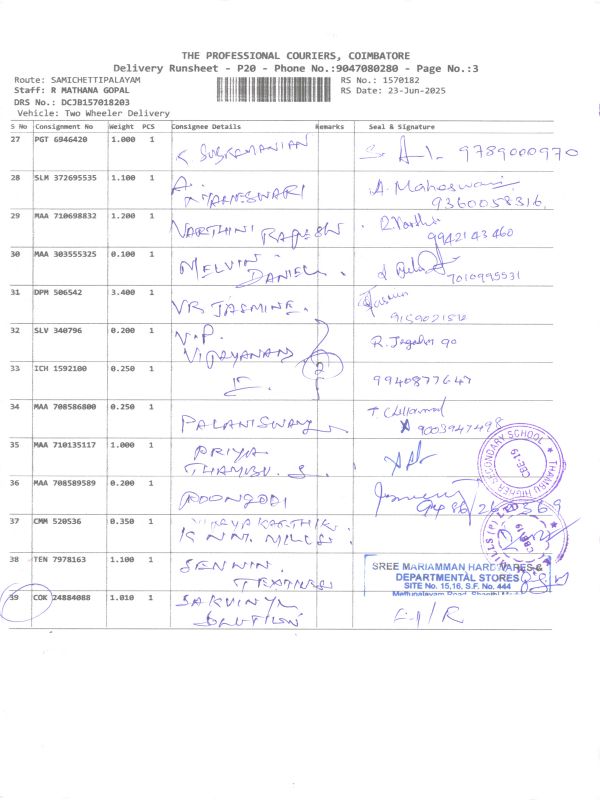 THE PROFESSIONAL COURIERS, COIMBATORE
Delivery Runsheet - P20 - Phone No.:9047080280 - Page No.:3
Route: SAMICHETTIPALAYAM
RS No.: 1570182
Staff: R MATHANA GOPAL
RS Date: 23-Jun-2025
DRS No.: DCJB157018203
Vehicle: Two Wheeler Delivery
S No Consignment No Weight PCS Consignee Details Remarks Seal & Signature
27 PGT 6946420 1.000 1 K SUBRAMANIAN 9789000970
28 SLM 372695535 1.100 1 A. A. Maheswari
9360058316
29 MAA 710698832 1.200 1 VARTHINI
9942143460
30 MAA 303555325 0.100 1 MELVIN DANIEL
7010995531
31 DPM 506542 3.400 1 VR JASMINE.
32 SLV 340796 0.200 1 V.P.
VIJAYANAND
33 ICH 1592100 0.250 1 2 9940877647
34 MAA 708586800 0.250 1 PALANISWAMY
9003947498
35 MAA 710135117 1.000 1 PRIYA
THAMBU. S.
36 MAA 708589589 0.200 1 POONGODI
37 CMM 520536 0.350 1 VIJAYA KARTHIK
K N N MILLS.
38 TEN 7978163 1.100 1 SENNIN
TEXTILES
39 COK 24884088 1.010 1
THIAGU HIGHER SECONDARY SCHOOL
CBE-19
CBE-19
SREE MARIAMMAN HARDWARES &
DEPARTMENTAL STORES
SITE No. 15,16, S.F. No. 444